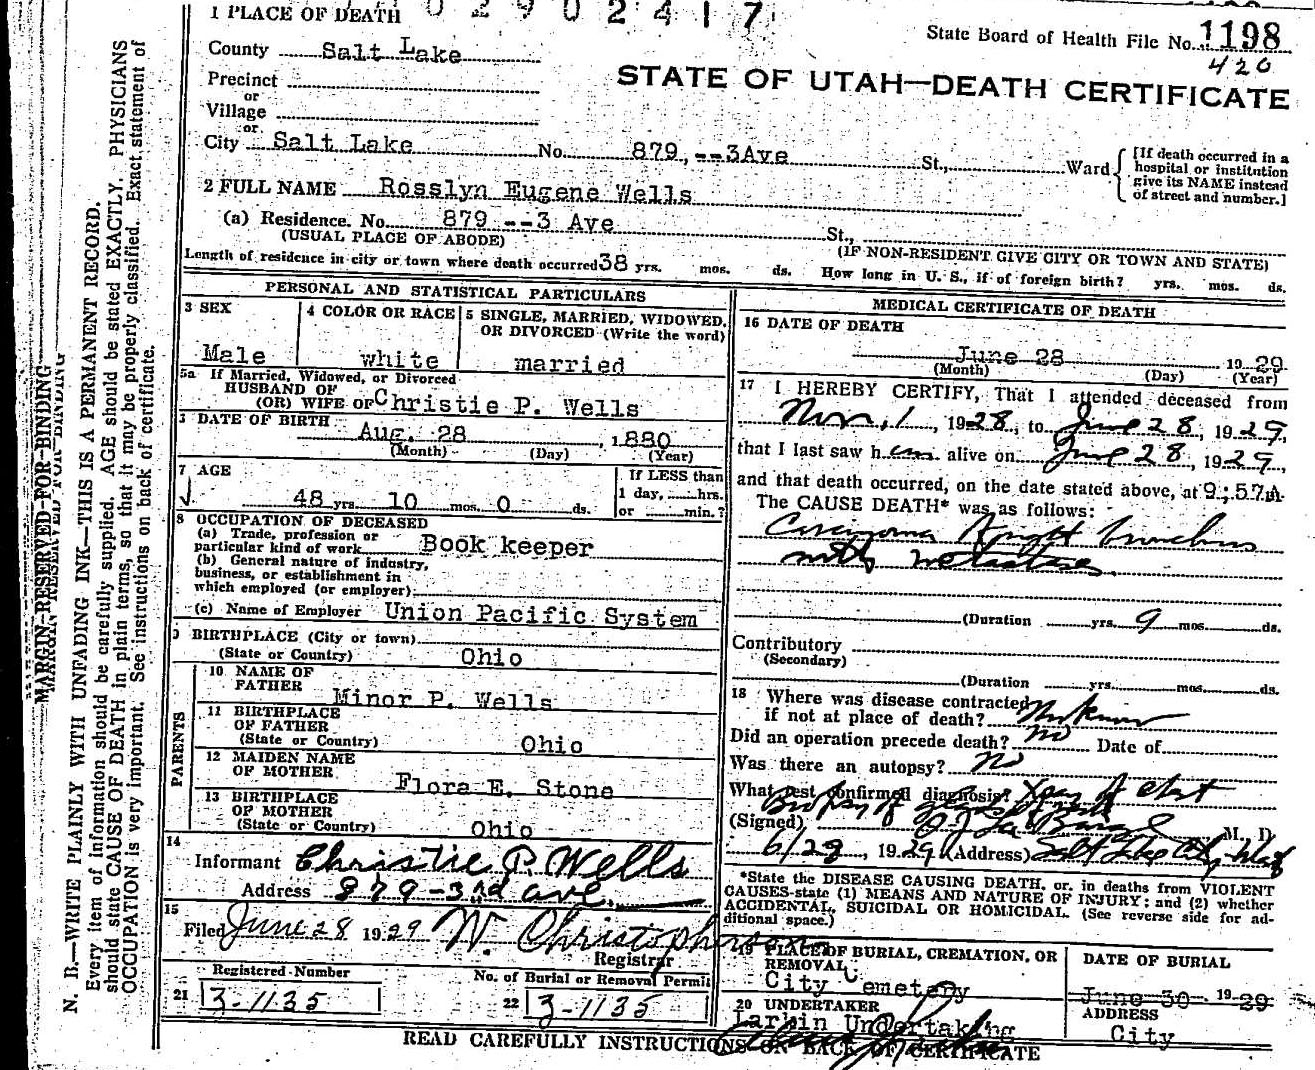 0 2 9 0 2 4 1 7
1 PLACE OF DEATH
State Board of Health File No. 1198
420
County Salt Lake
STATE OF UTAH—DEATH CERTIFICATE
Precinct
or
Village
or
City Salt Lake No. 879, --3Ave St., Ward
[If death occurred in a hospital or institution give its NAME instead of street and number.]
2 FULL NAME Rosslyn Eugene Wells
(a) Residence. No. 879 --3 Ave St.,
(USUAL PLACE OF ABODE) (IF NON-RESIDENT GIVE CITY OR TOWN AND STATE)
Length of residence in city or town where death occurred 38 yrs. mos. ds. How long in U. S., if of foreign birth? yrs. mos. ds.
PERSONAL AND STATISTICAL PARTICULARS
3 SEX
Male
4 COLOR OR RACE
white
5 SINGLE, MARRIED, WIDOWED,
OR DIVORCED (Write the word)
married
5a If Married, Widowed, or Divorced
HUSBAND OF
(OR) WIFE OF Christie P. Wells
DATE OF BIRTH
Aug. 28, 1880
(Month) (Day) (Year)
7 AGE
48 yrs. 10 mos. 0 ds.
If LESS than
1 day, hrs.
or min.?
8 OCCUPATION OF DECEASED
(a) Trade, profession or
particular kind of work Book keeper
(b) General nature of industry,
business, or establishment in
which employed (or employer)
(c) Name of Employer Union Pacific System
9 BIRTHPLACE (City or town)
(State or Country) Ohio
PARENTS
10 NAME OF
FATHER Minor P. Wells
11 BIRTHPLACE
OF FATHER
(State or Country) Ohio
12 MAIDEN NAME
OF MOTHER Flora E. Stone
13 BIRTHPLACE
OF MOTHER
(State or Country) Ohio
14
Informant Christie P. Wells
Address 879-3rd ave.
15
Filed June 28 1929 W. Christopherson
Registrar
Registered Number
21 3-1135
No. of Burial or Removal Permit
22 3-1135
MEDICAL CERTIFICATE OF DEATH
16 DATE OF DEATH
June 28 1929
(Month) (Day) (Year)
17 I HEREBY CERTIFY, That I attended deceased from
Nov. 1, 1928, to June 28, 1929,
that I last saw h im alive on June 28, 1929,
and that death occurred, on the date stated above, at 9:57A m.
The CAUSE DEATH* was as follows:
Carcinoma Right bronchus
with metastases
(Duration yrs. 9 mos. ds.
Contributory
(Secondary)
(Duration yrs. mos. ds.
18 Where was disease contracted
if not at place of death? Unknown
Did an operation precede death? no Date of
Was there an autopsy? No
What test confirmed diagnosis? Xray of chest
Biopsy of
(Signed) M. D.
6/28, 1929 (Address) Salt Lake City Utah
*State the DISEASE CAUSING DEATH, or, in deaths from VIOLENT
CAUSES-state (1) MEANS AND NATURE OF INJURY; and (2) whether
ACCIDENTAL, SUICIDAL OR HOMICIDAL. (See reverse side for ad-
ditional space.)
19 PLACE OF BURIAL, CREMATION, OR
REMOVAL
City Cemetery
DATE OF BURIAL
June 30 1929
20 UNDERTAKER
Larkin Undertaking
ADDRESS
City
READ CAREFULLY INSTRUCTIONS ON BACK OF CERTIFICATE
MARGIN RESERVED FOR BINDING
N. B.—WRITE PLAINLY WITH UNFADING INK—THIS IS A PERMANENT RECORD.
Every item of information should be carefully supplied. AGE should be stated EXACTLY. PHYSICIANS
should state CAUSE OF DEATH in plain terms, so that it may be properly classified. Exact statement of
OCCUPATION is very important. See instructions on back of certificate.